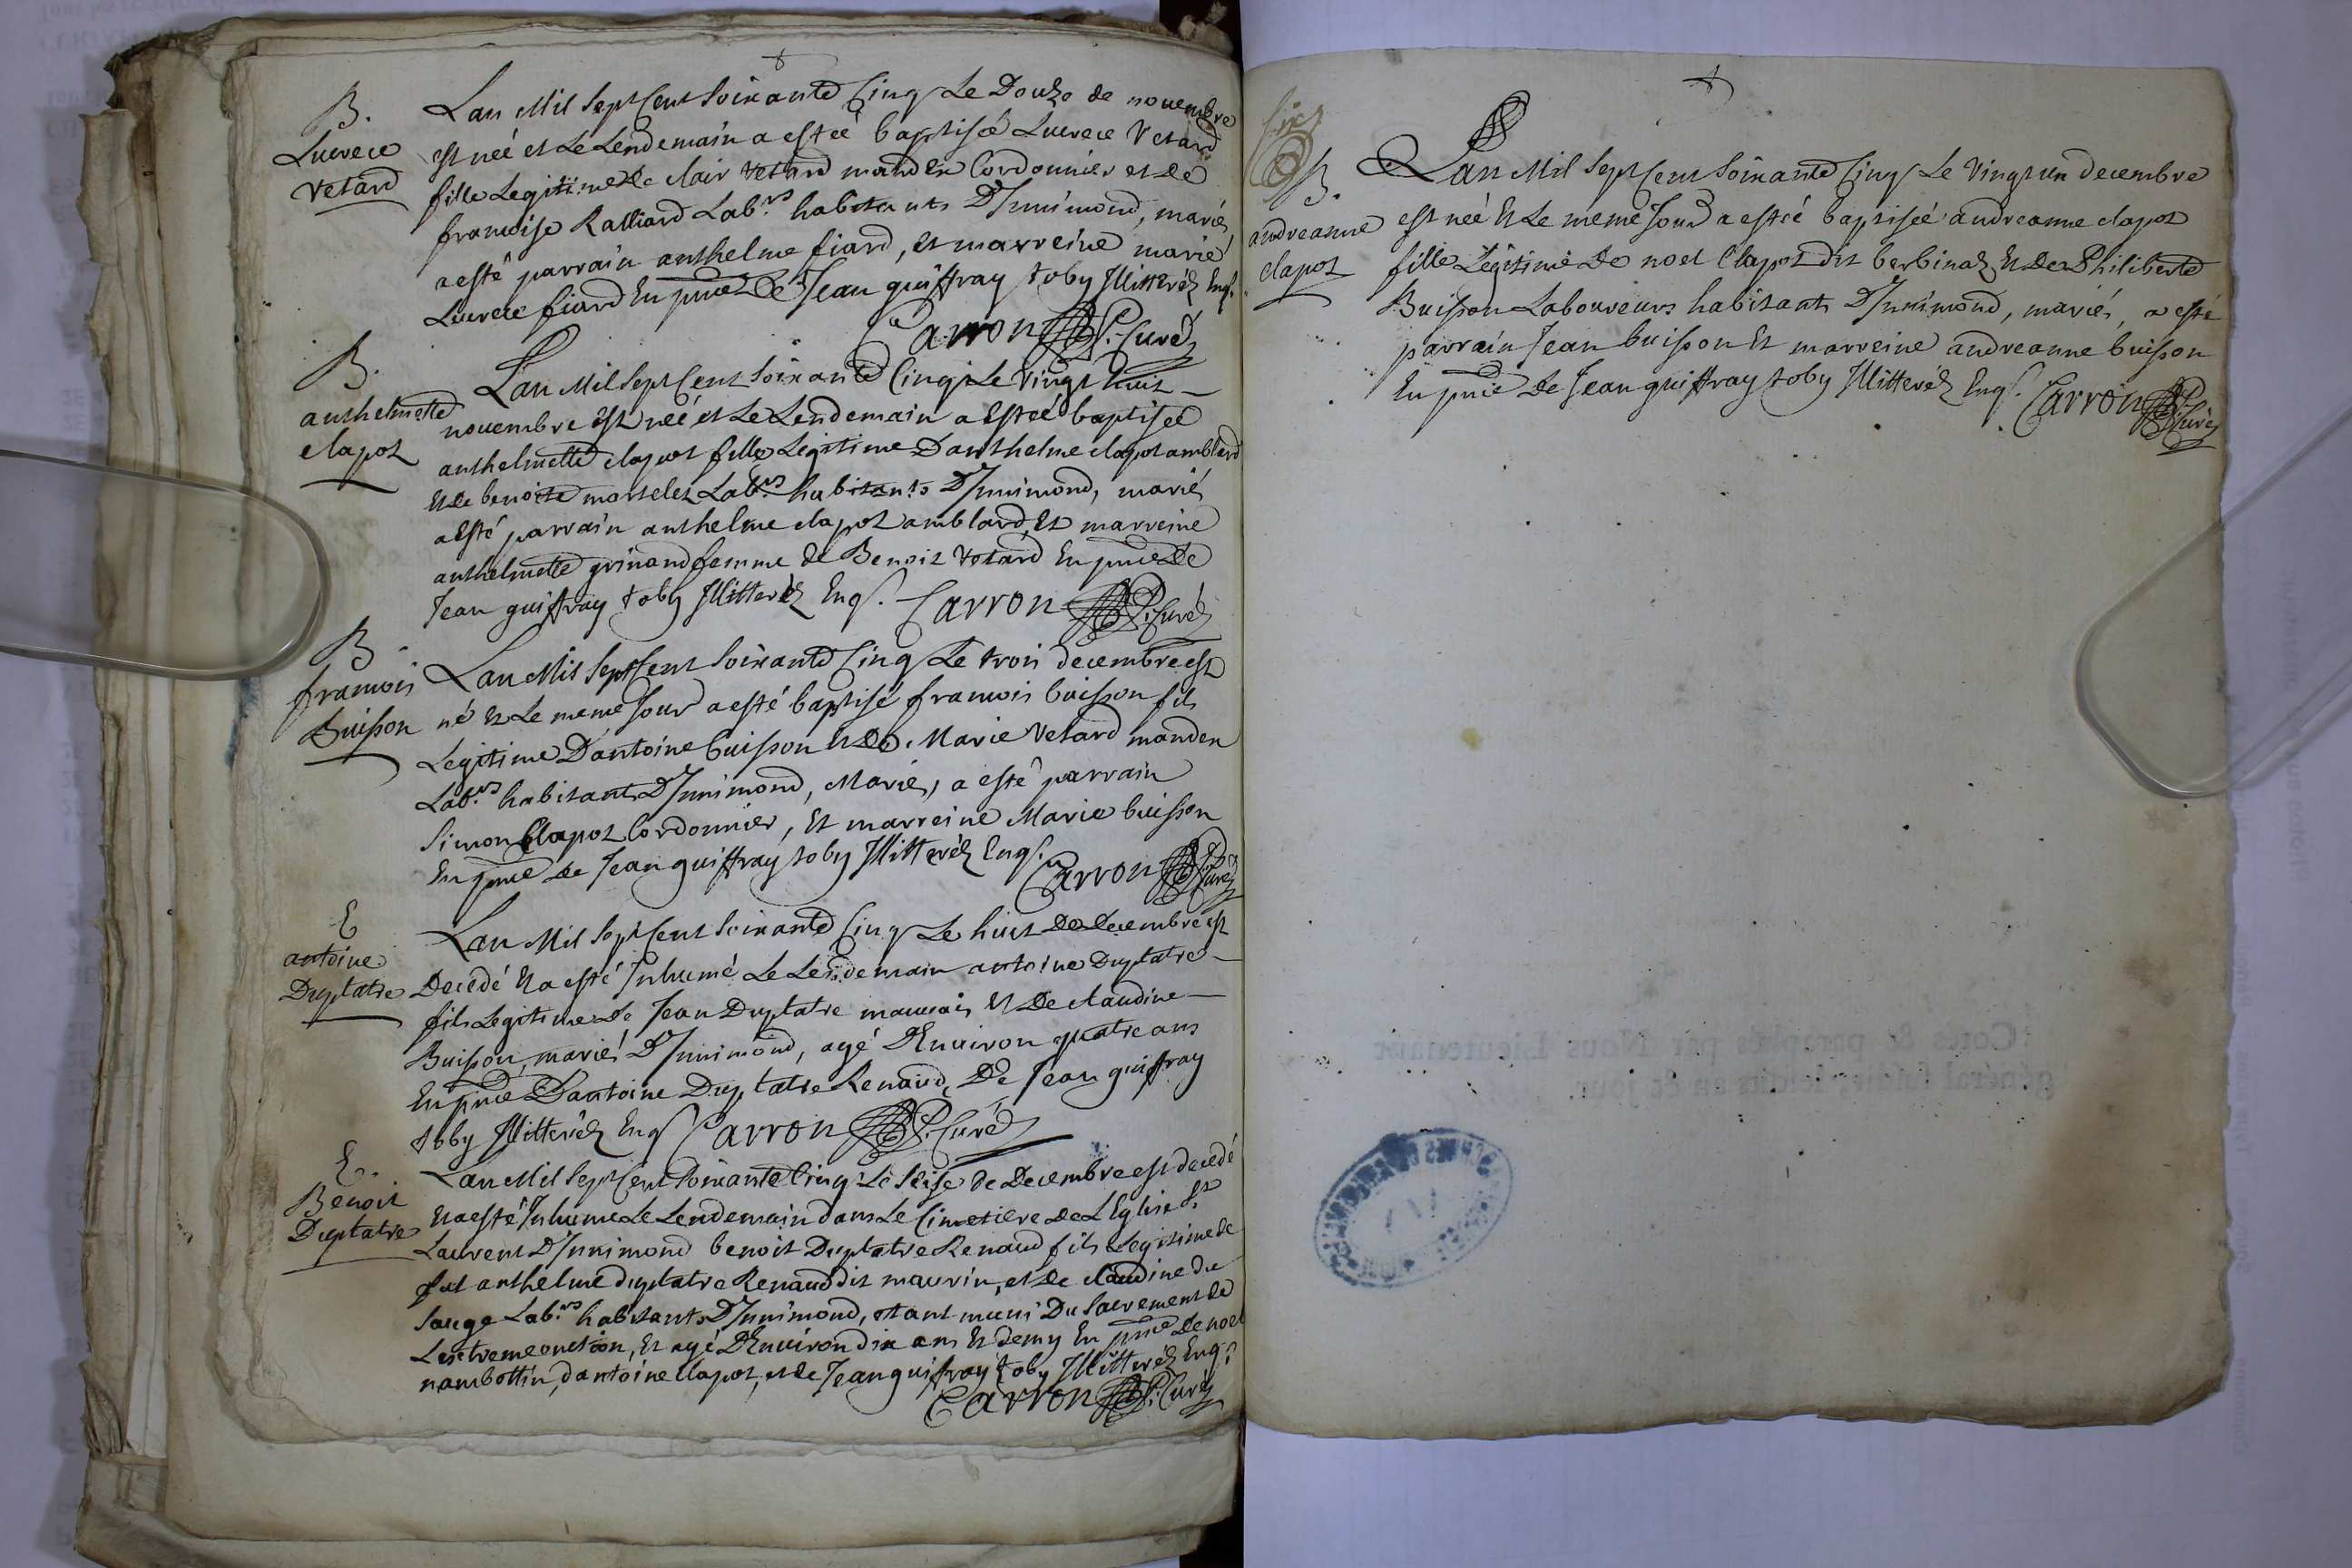 B.
Lucrece
Vetard
Lan Mil Sept Cent Soixante Cinq Le Douze de novembre
est née et Le Lendemain a estée baptisée Lucrece Vetard
fille Legitime de clair Vetard manden Cordonnier et de
francoise Ralliard Lab.rs habitants D'Innimond, mariés,
a esté parrain anthelme fiard, et marreine marie
Lucrece fiard En pnce De Jean guiffray toby Illitterés Enqs.
Carron P. Curé
B.
anthelmette
clapot
Lan Mil Sept Cent Soixante Cinq Le Vingt huit
novembre est née et Le Lendemain a Estée baptisée
anthelmette clapot fille Legitime Danthelme clapot amblard
et de benoite mortelet Lab.rs habitants D'Innimond, mariés
a Esté parrain anthelme clapot amblard, Et marreine
anthelmette grinand femme de Benoit Vetard En pnce De
Jean guiffray toby Illitterés Enqs. Carron P. Curé
B.
francois
Buisson
Lan Mil Sept Cent Soixante Cinq Le trois decembre est
né et Le meme Jour a esté baptisé francois buisson fils
Legitime D'antoine buisson et De Marie Vetard manden
Lab.rs habitants D'Innimond, Mariés, a esté parrain
Simon Clapot Cordonnier, Et marreine Marie buisson
En pnce de Jean guiffray toby Illitterés Enqs.
Carron P. Curé
E
antoine
Duplatre
Lan Mil Sept Cent Soixante Cinq Le huit De Decembre est
Decedé Et a esté Inhumé Le Lendemain antoine Duplatre
fils Legitime De Jean Duplatre mauvais Et De claudine
Buisson, mariés D'Innimond, agé D'Environ quatre ans
En pnce D'antoine Duplatre Renaud, De Jean guiffray
toby Illitterés Enq Carron P. Curé
E.
Benoit
Duplatre
Lan Mil Sept Cent Soixante Cinq Le Seise de Decembre est decedé
Et a esté Inhumé Le Lendemain dans Le Cimetiere de L'Eglise St
Laurent D'Innimond benoit Duplatre Renaud fils Legitime de
fut anthelme duplatre Renaud dit maurin, et De claudine du
Sauge Lab.rs habitants D'Innimond, etant muni Du Sacrement de
Lextreme onction, Et agé D'Environ dix ans Et demy En pnce De noel
nambottin, d'antoine Clapot, et de Jean guiffray toby Illitterés Enqs
Carron P. Curé
Six
B.
andreanne
clapot
Lan Mil Sept Cent Soixante Cinq Le Vingt un decembre
est née Et Le meme Jour a estée baptisée andreanne clapot
fille Legitime De noel Clapot dit berbinat, Et De Philiberte
Buisson Laboureurs habitants D'Innimond, mariés, a esté
parrain Jean buisson Et marreine andreanne buisson
En pnce De Jean guiffray toby Illitterés Enqs. Carron P. Curé